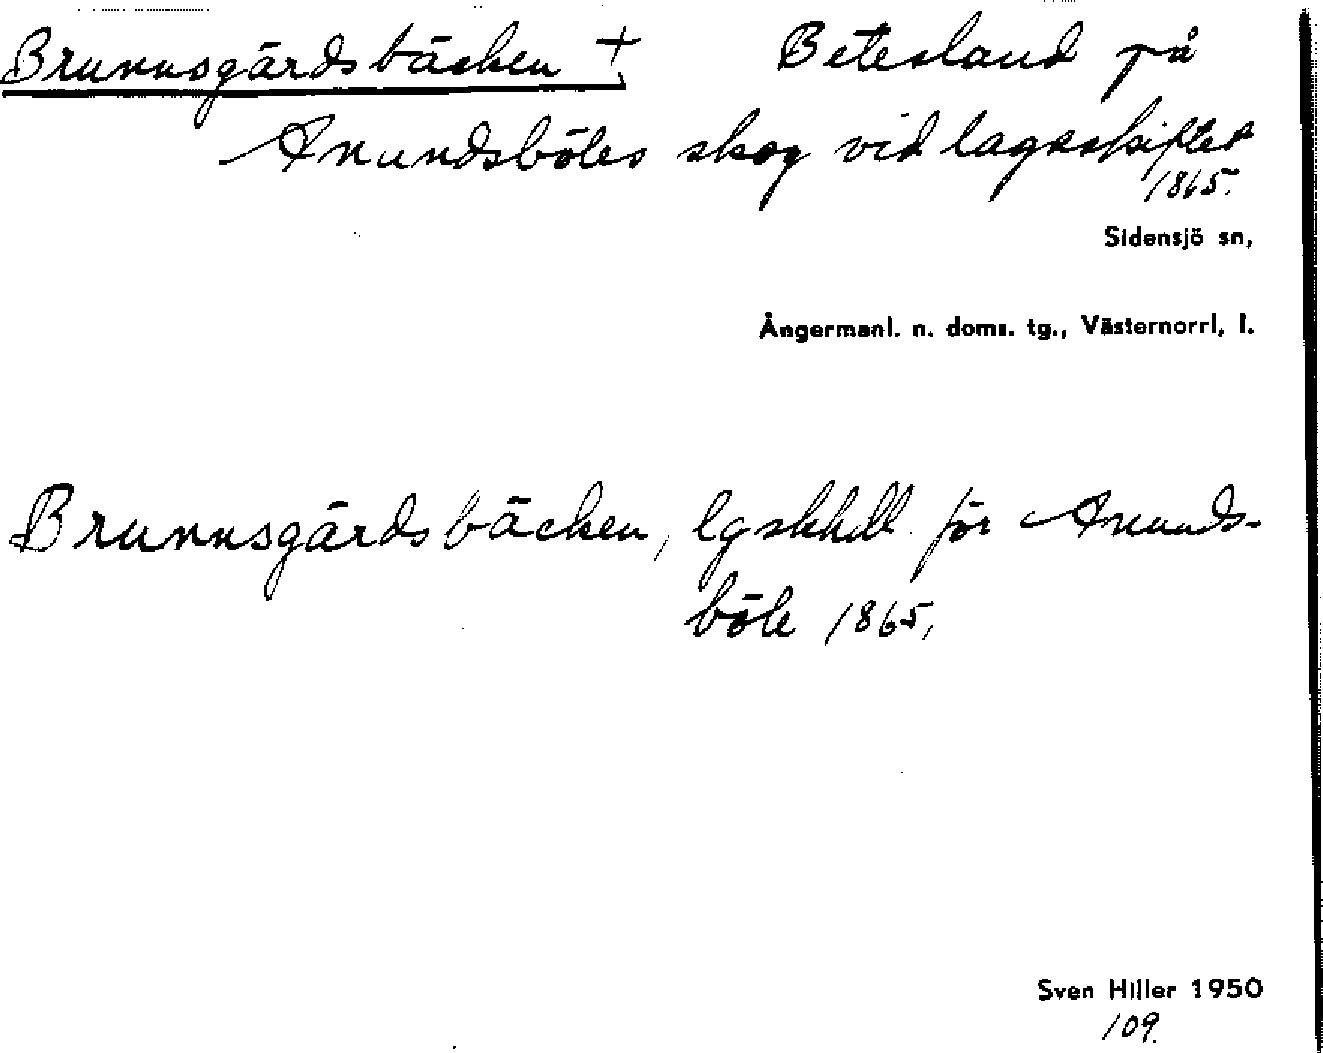 Brunnsgärdsbäcken + Betesland på
Anundsböles skog vid lagaskiftet
1865.
Sidensjö sn,
Ångermanl. n. doms. tg., Västernorrl. l.
Brunnsgärdsbäcken, lgskhdl. för Anunds-
böle 1865,
Sven Hiller 1950
109.